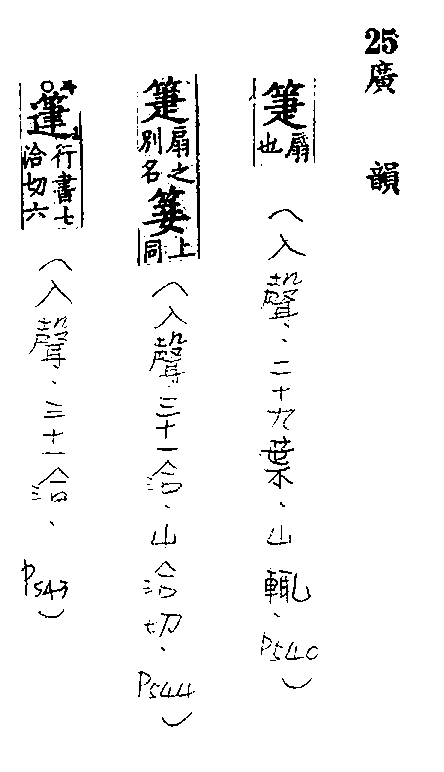 25廣韻
箑扇也（入聲、二十九葉、山輒、P540）
箑扇之別名 上同（入聲三十一洽、山洽切、P544）
行書七洽切六（入聲、三十一洽、P543）